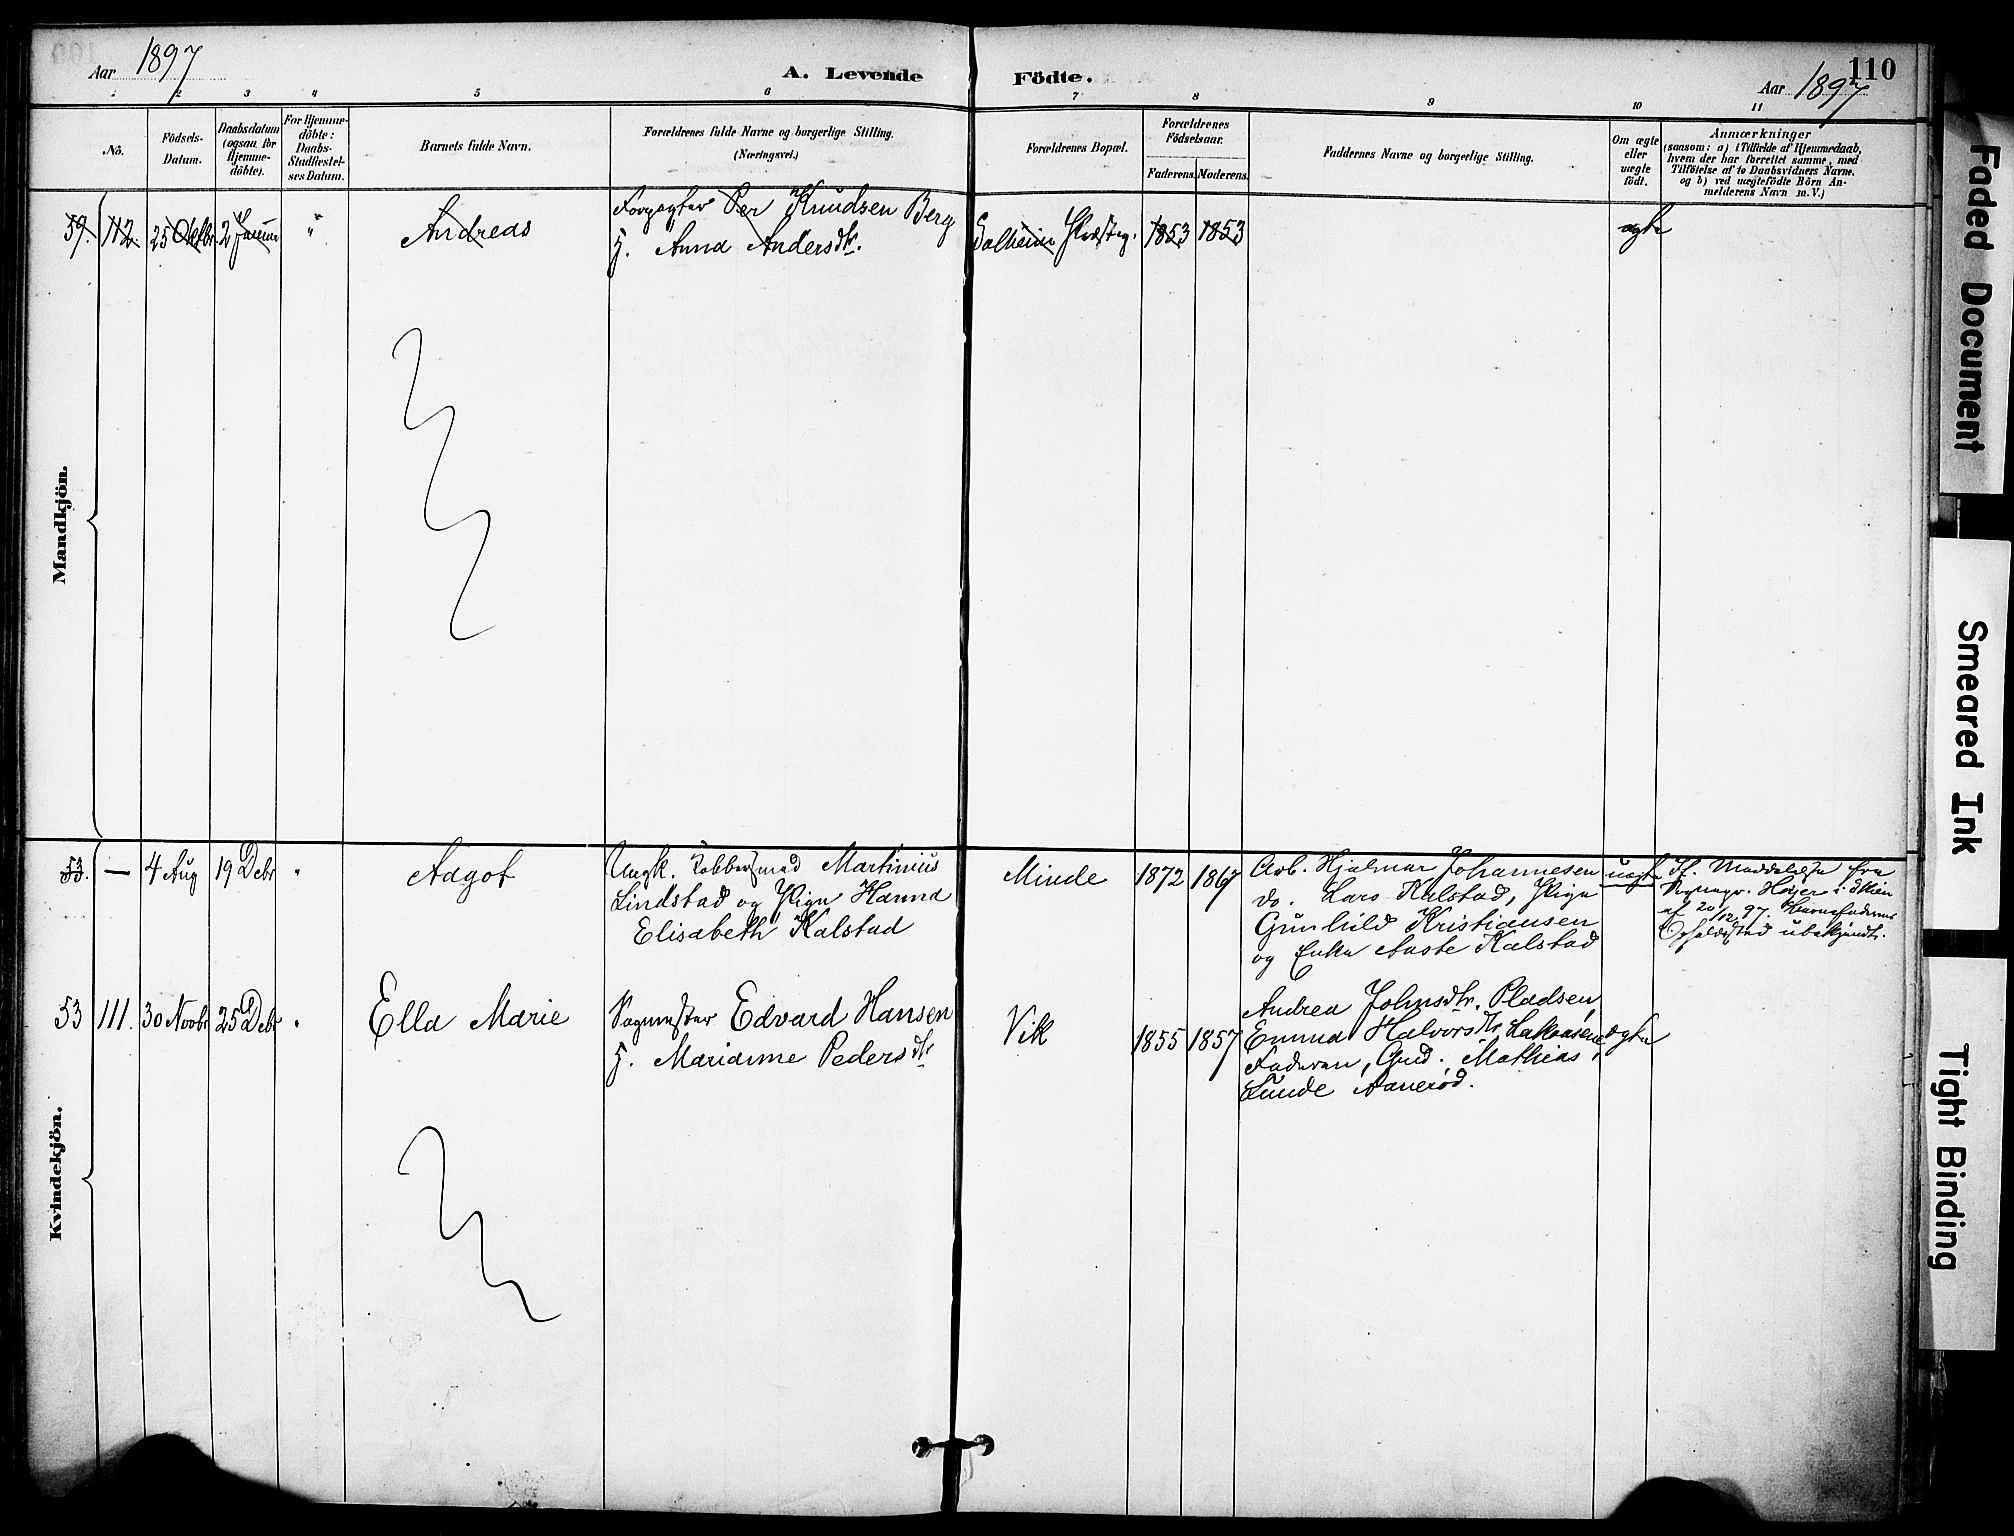 Aar 1897
A. Levende
Födte.
110
Aar 1897
1 2 3 4 5 6 7 8 9 10 11
No.
Födsels-
Datum.
Daabsdatum
(ogsaa for
Hjemme-
döbte).
For Hjemme-
döbte:
Daabs-
Stadfæstel-
ses Datum.
Barnets fulde Navn.
Forældrenes fulde Navne og borgerlige Stilling.
(Næringsvei.)
Forældrenes Bopæl.
Forældrenes
Födselsaar.
Faderens. Moderens.
Faddernes Navne og borgerlige Stilling.
Om ægte
eller
uægte
födt.
Anmærkninger
(saasom: a) i Tilfælde af Hjemmedaab,
hvem der har forrettet samme, med
Tilföielse af to Daabsvidners Navne.
og b) ved uægtefödte Börn An-
melderens Navn m. V.)
Mandkjön.
59. 112. 25 Oktbr 2 Januar " Andreas
Forpagter Per Knudsen Berg
H. Anna Andersdtr.
Solheim 1853 1853
ægte
Kvindekjön.
53. — 4 Aug 19 Debr " Aagot
Ungk. Kobbersmed Martinius
Lindstad og Pige Hanna
Elisabeth Kalstad
Minde 1872 1867
Arb. Hjalmar Johannesen
do. Lars Kalstad, Pige
Gunhild Kristiansen
og Enke Aaste Kalstad
uægte
If. Meddelelse fra
Sognepr. Højer i Skien
af 20/12 97. Barnefaderens
Opholdssted ubekjendt.
53 111. 30 Novbr 25 Debr " Ella Marie
Edvard Hansen
H. Marianne Pedersdtr
Vik 1855 1857
Andrea Johnsdtr. Pladsen,
Emma Halvorsdtr
Faderen, Gud. Mathias
Lunde Aanerød.
ægte
Faded Document
Smeared Ink
Tight Binding